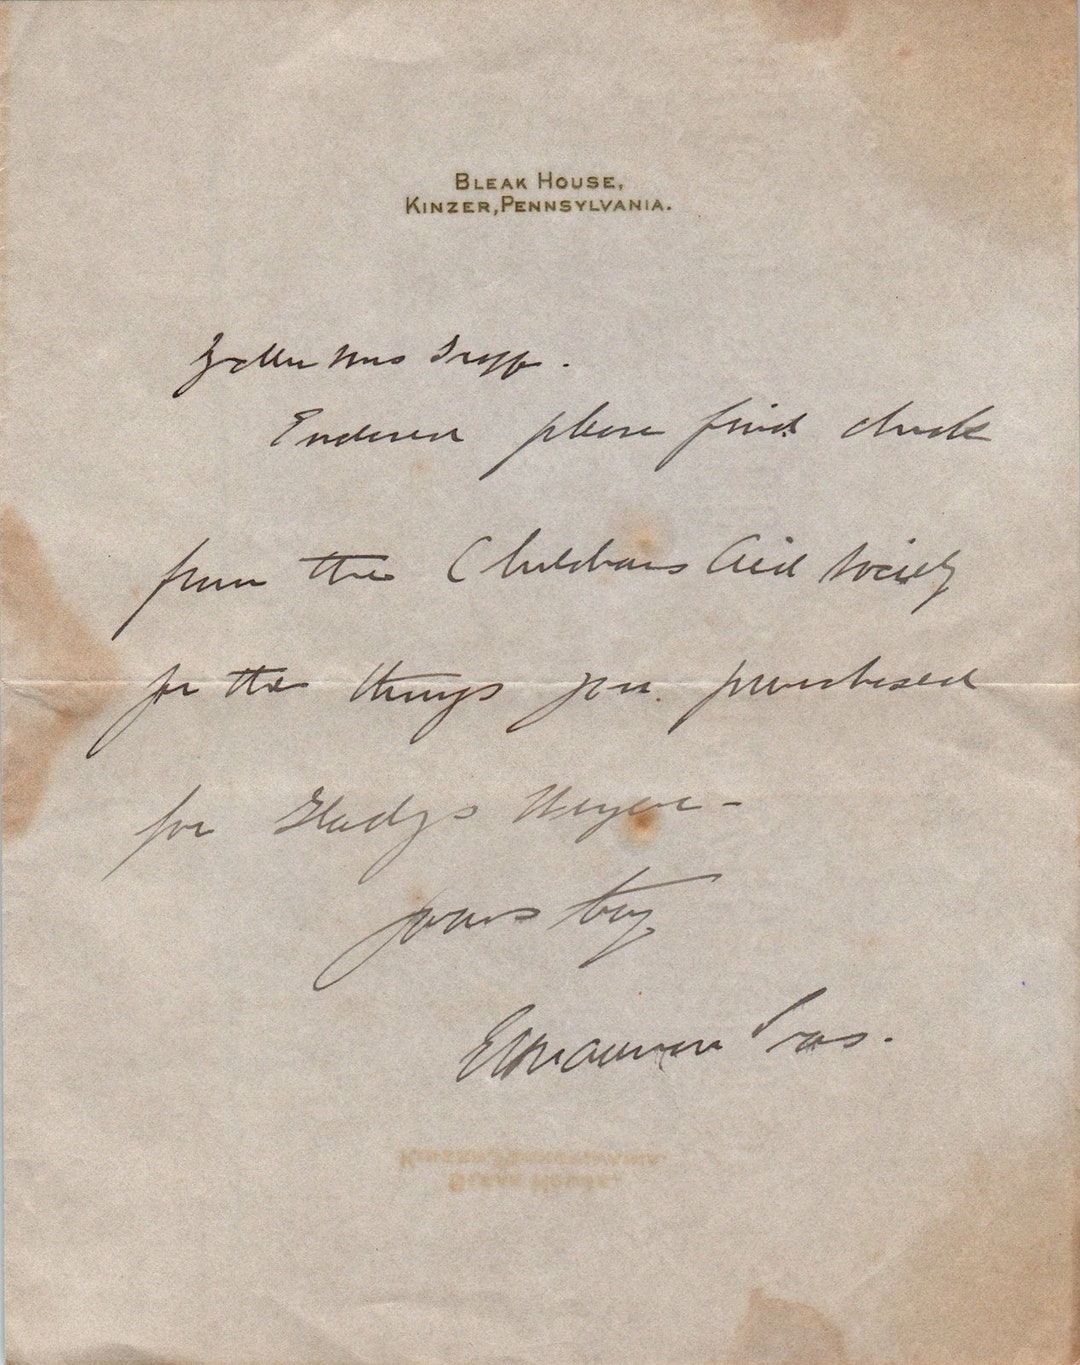 BLEAK HOUSE,
KINZER, PENNSYLVANIA.
My dear Mrs
Enclosed please find check
from the Childrens Aid Society
for the things you purchased
for Gladys
yours truly
Treas.
KINZER, PENNSYLVANIA.
BLEAK HOUSE,